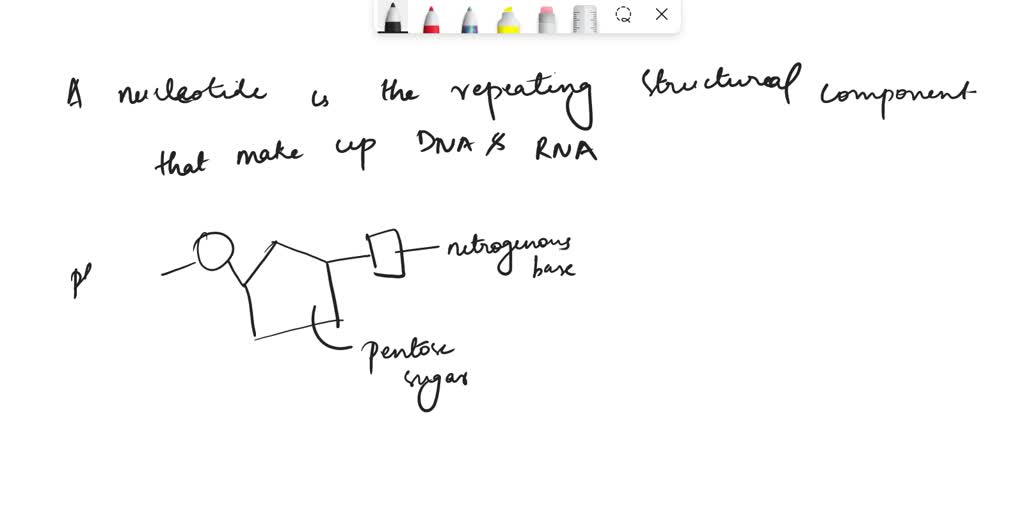 A nucleotide is the repeating structural component
that make up DNA & RNA
nitrogenous
base
ph
pentose
sugar